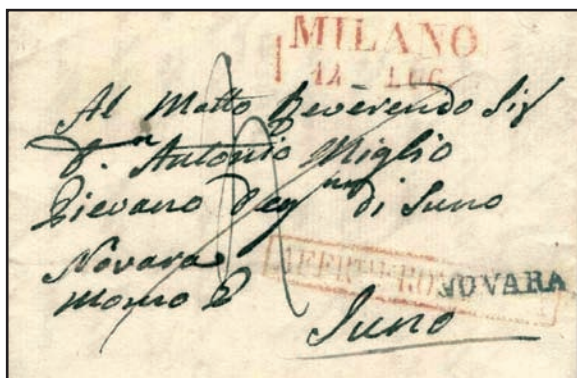 MILANO
LUG
Al Molto Reverendo Sig
D.n Antonio Miglio
Pievano deg.mo di Suno
Novara
NOVARA
Momo
Suno